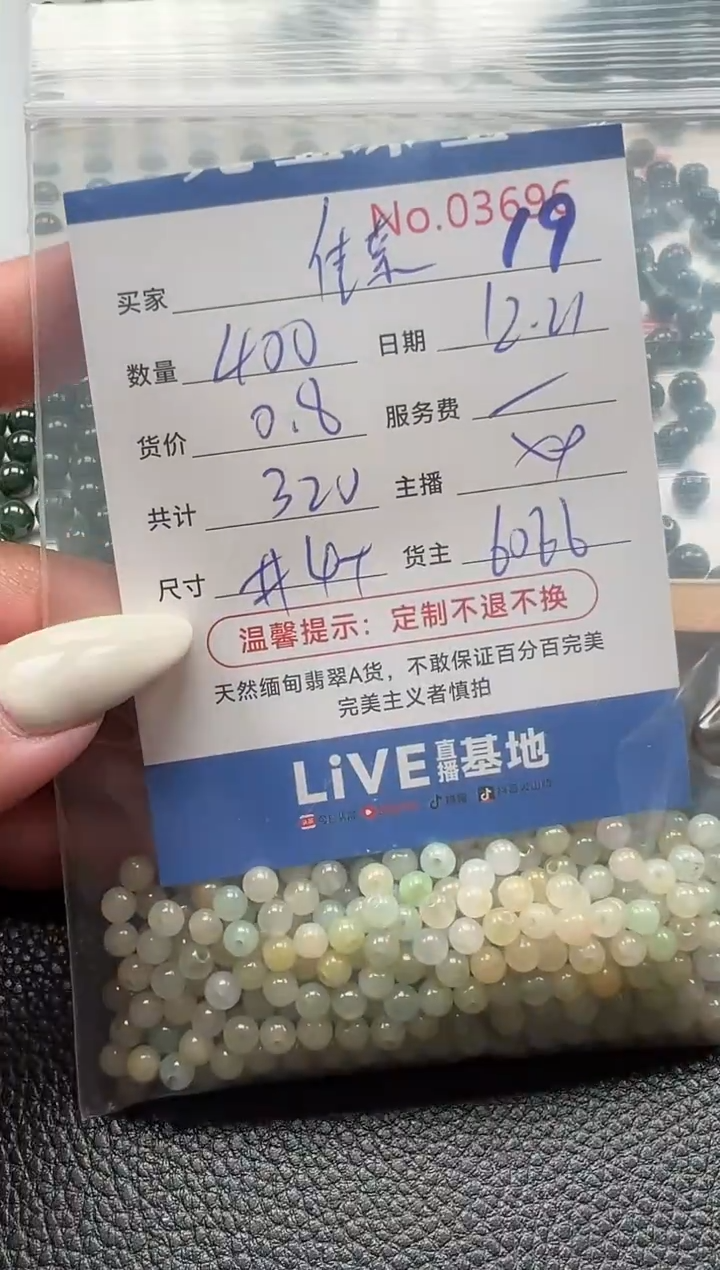 No.03696
买家 佳荣 19
数量 400 日期 12.21
货价 0.8 服务费
共计 320 主播
尺寸 #4+ 货主 6066
温馨提示:定制不退不换
天然缅甸翡翠A货,不敢保证百分百完美
完美主义者慎拍
LiVE直播基地